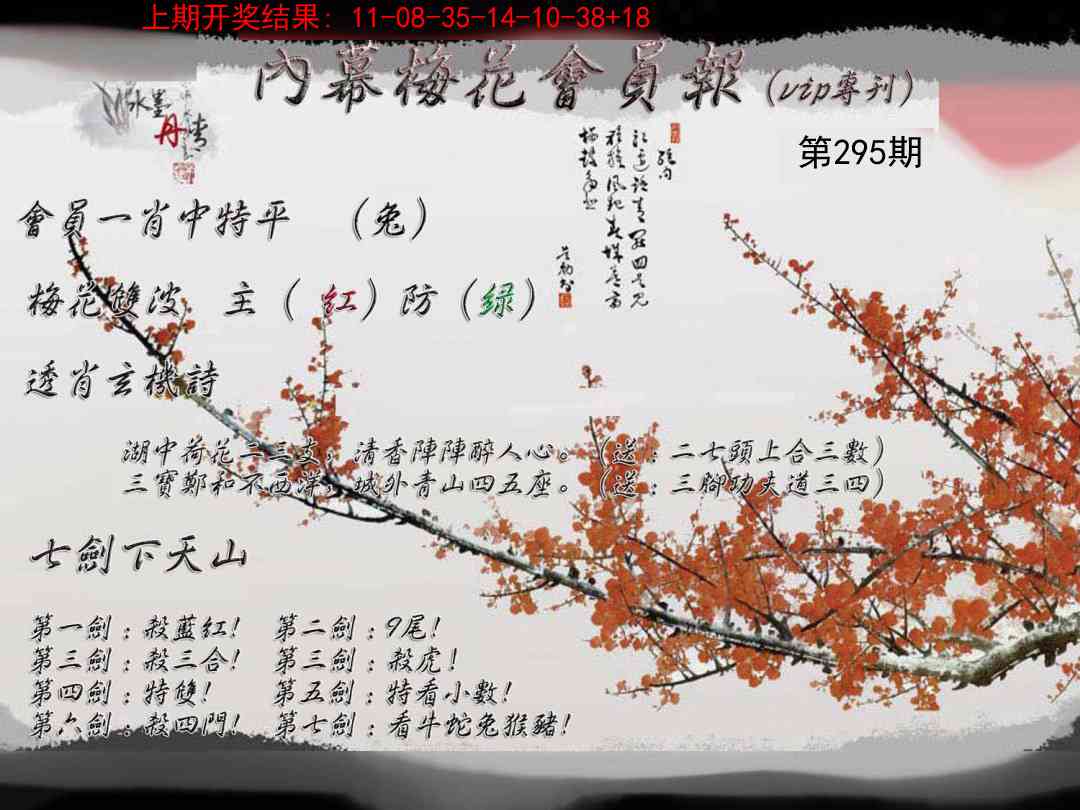 上期开奖结果: 11-08-35-14-10-38+18
內幕梅花會員報(vip專刊)
水墨
丹青
第295期
會員一肖中特平 (兔)
梅花雙波 主(紅)防(緑)
透肖玄機詩
湖中荷花二三支,清香陣陣醉人心。(送:二七頭上合三數)
三寶鄭和下西洋,城外青山四五座。(送:三腳功夫道三四)
七劍下天山
第一劍:殺藍紅! 第二劍:9尾!
第三劍:殺三合! 第三劍:殺虎!
第四劍:特雙! 第五劍:特看小數!
第六劍:殺四門! 第七劍:看牛蛇兔猴豬!